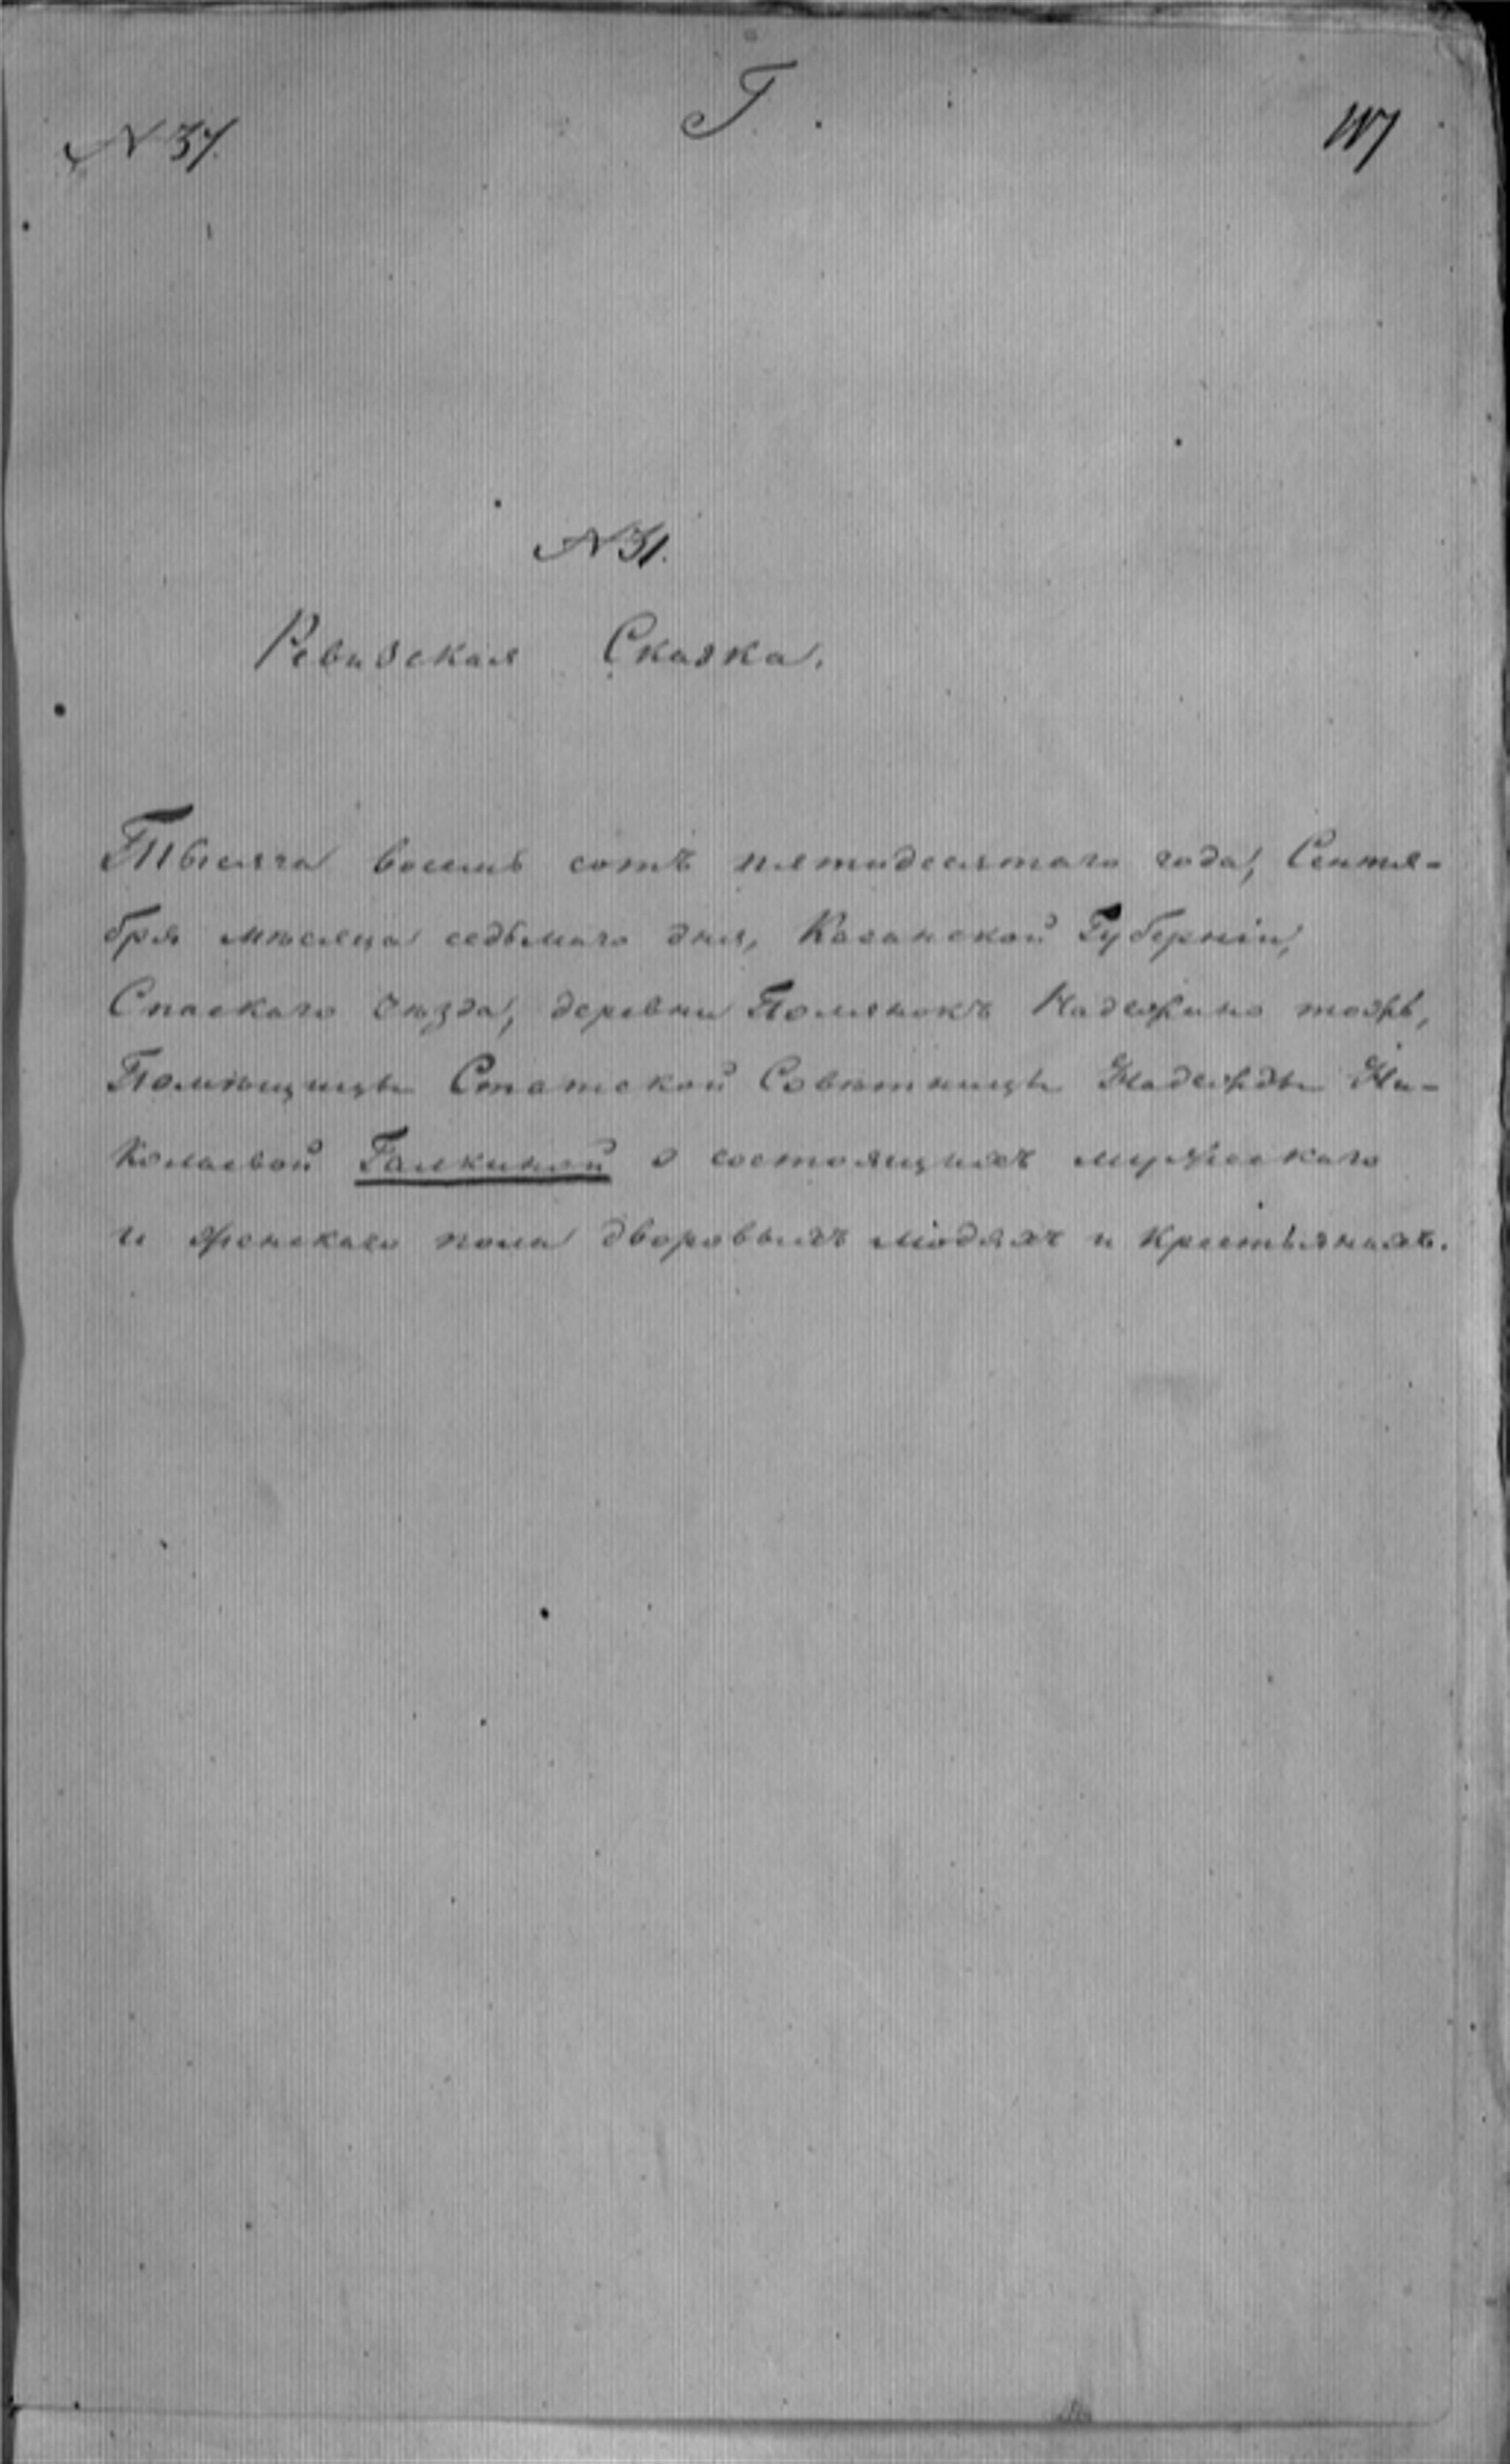 Г.
N 37.
N 31.
Ревизская Сказка.
Тысяча восемь сотъ пятидесятаго года, Сентя-
бря мѣсяца седьмаго дня, Казанской Губерніи,
Спаскаго уѣзда, деревни Полянокъ Надежино тожъ,
Помѣщицы Статской Совѣтницы Надежды Ни-
колаевой Галкиной о состоящихъ мужескаго
и женскаго пола дворовыхъ людяхъ и крестьянахъ.